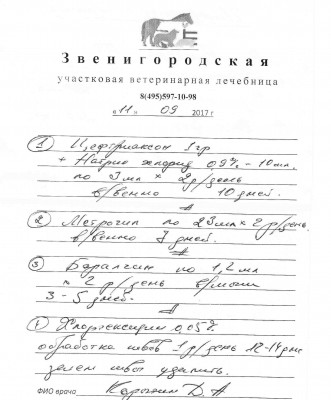 Звенигородская
участковая ветеринарная лечебница
8(495)597-10-98
"11" 09 2017 г
① Цефтриаксон 1гр
+ Натрио хлорид 0,9% - 10мл.
по 3мл × 2р/день
в/венно 10 дней.
② Метрогил по 23мл × 2р/день
в/венно 7 дней.
③ Баралгин по 1,2мл
× 2р/день в/мышь
3-5 дней.
Хлоргексидин 0,05%
обработка швов 1р/день 12-14 дне
затем швы удалить.
ФИО врача Д. А